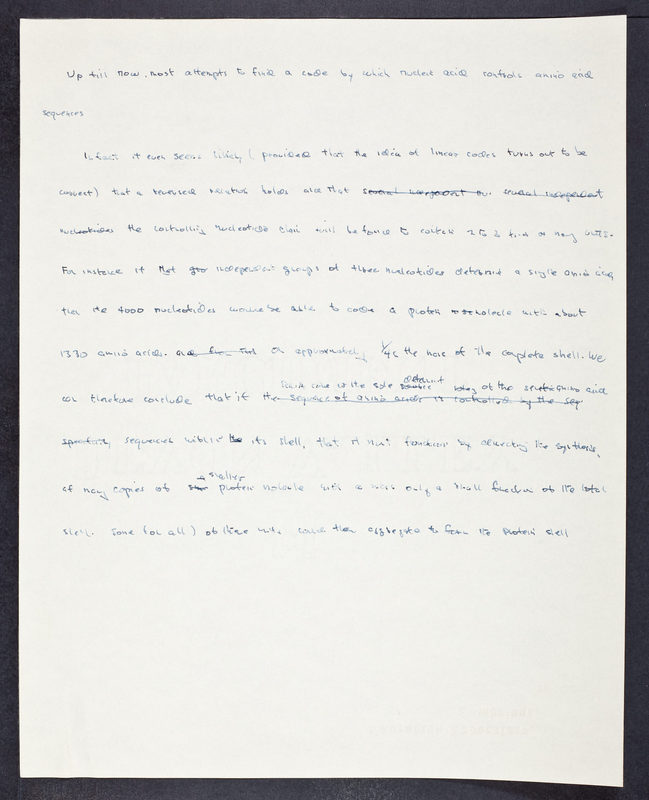 Up till now, most attempts to find a code by which nucleic acid controls amino acid
sequences
In fact it even seems likely (provided that the idea of linear codes turns out to be
correct) that a reversed relation holds and that several independent or several independent
nucleotides the controlling nucleotide chain will be found to contain 2 to 3 times as many units.
For instance if that independent groups of three nucleotides determine a single amino acid
then the 4000 nucleotides would be able to code a protein molecule with about
1330 amino acids. and or approximately the mass of the complete shell. We
code is the sole determinant of the amino acid
can therefore conclude that if the sequence of amino acids is controlled by the seq
specificity sequences within the its shell, that it must function by directing the synthesis,
a smaller
of many copies of protein molecule with a mass only a small fraction of the total
shell. Some (or all) of these units could then aggregate to form the protein shell